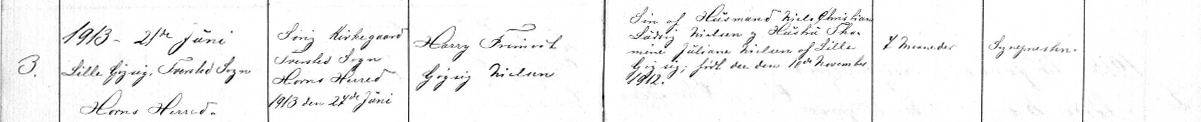 3.
1913 - 21de Juni
Lille Gøgsig, Tversted Sogn
Horns Herred.
Sørig Kirkegaard
Tversted Sogn
Horns Herred
1913 den 27de Juni
Harry
Gøgsig Nielsen
Søn af Husmand Niels Christian
Ludvig Nielsen og Hustru Tho-
mine Juliane Nielsen af Lille
Gøgsig, født der den 10de November
1912.
7 Maaneder
Sognepræsten.